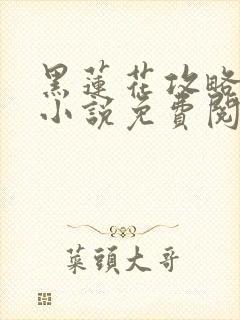 黑蓮花攻略
小說免費閱
菜頭大哥